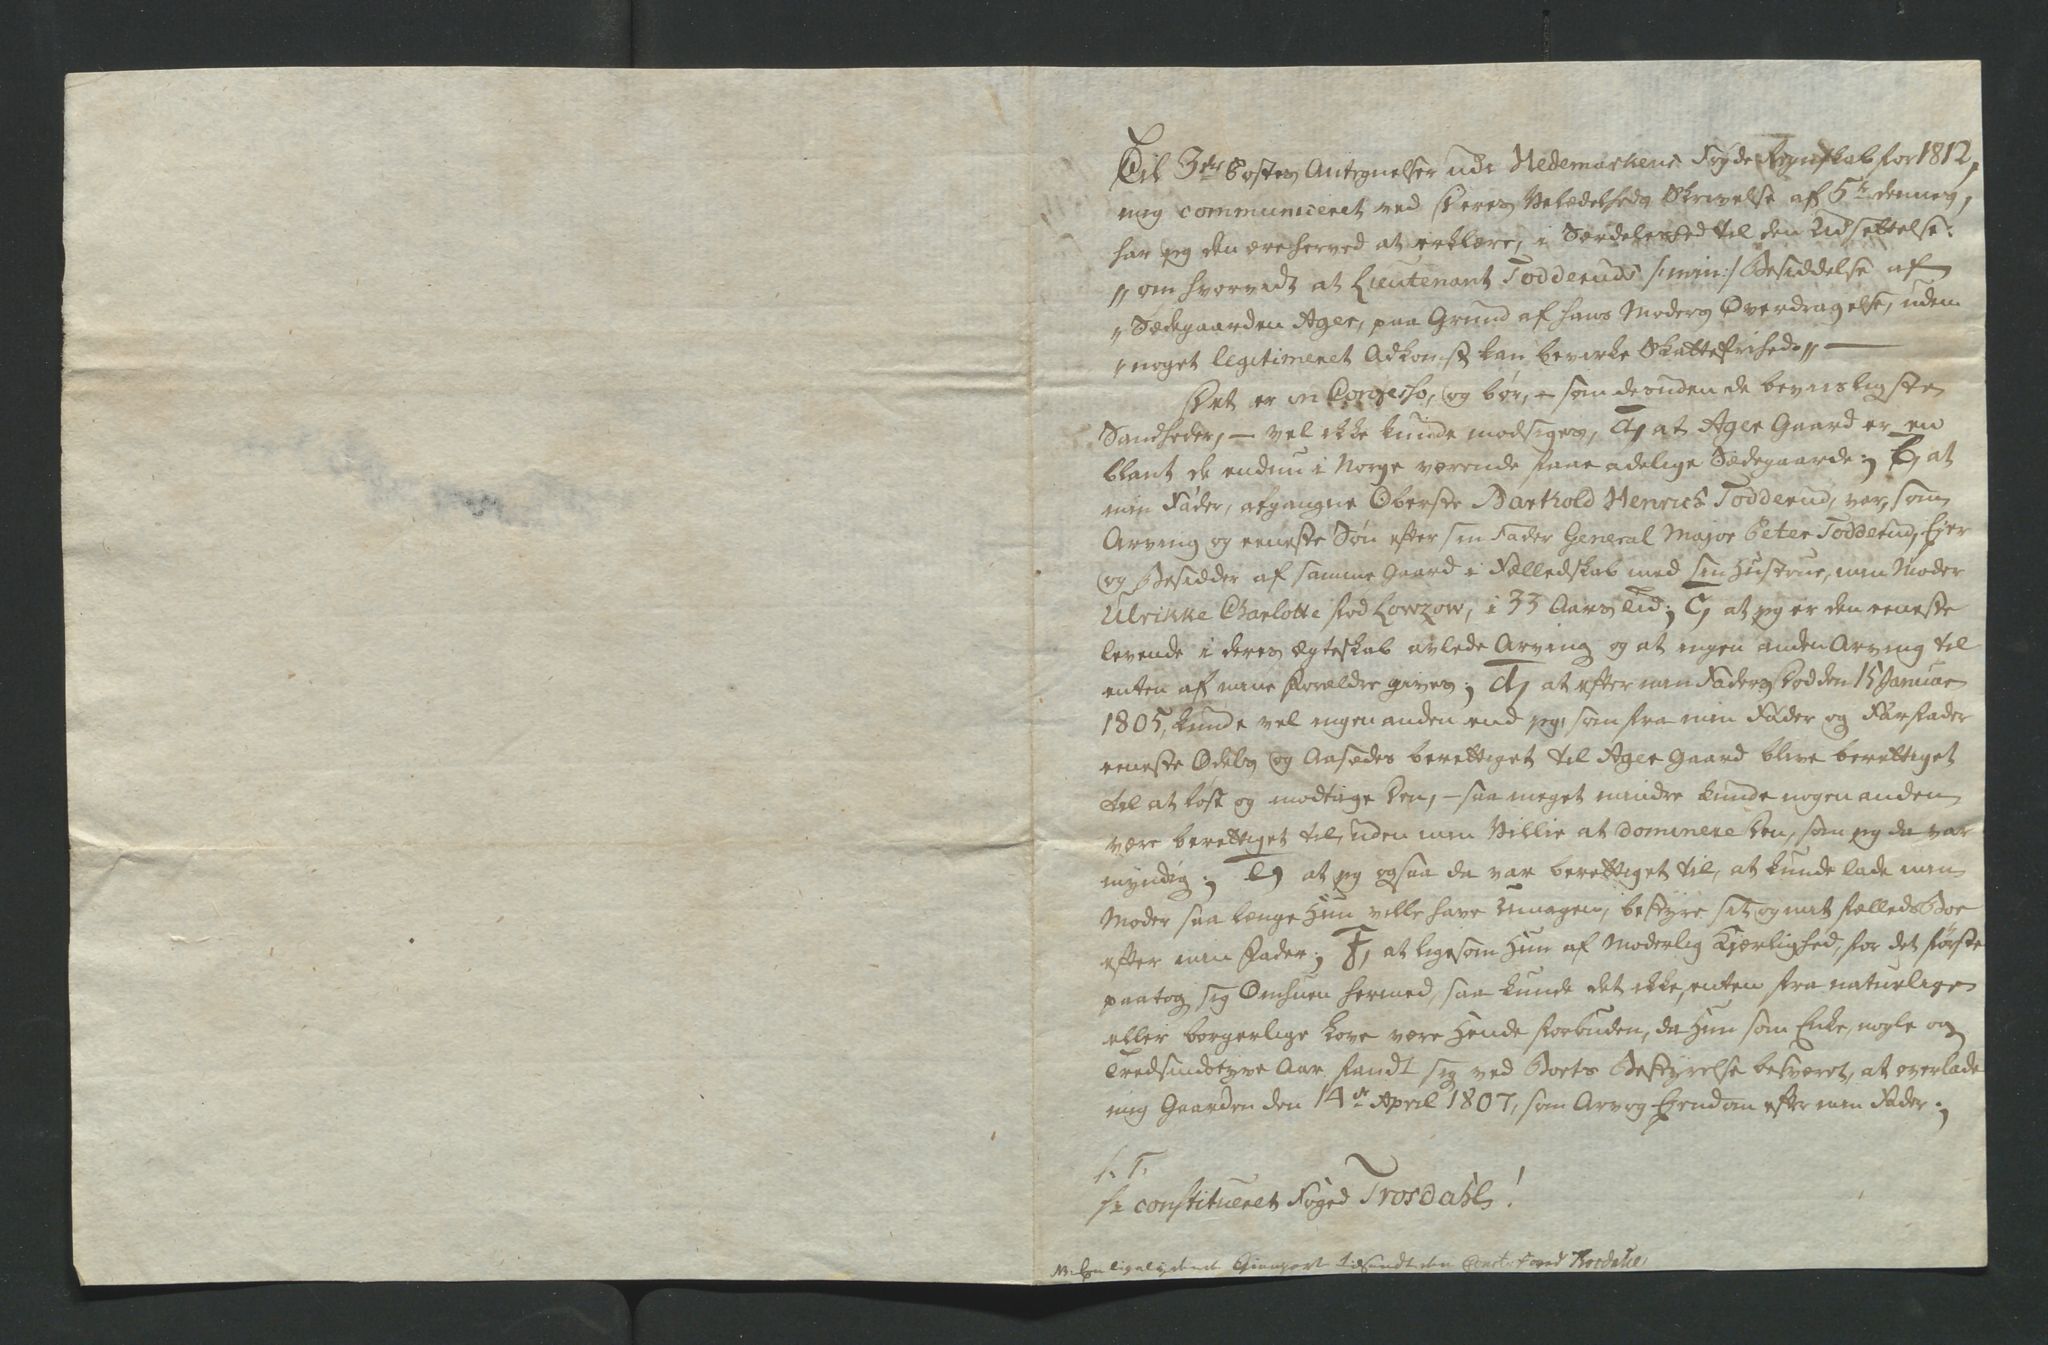 Til 3die Postes Antegnelser udi Hedemarkens Fogde Regnskab for 1812,
mig communiceret ved Deres Velædelheds Skrivelse af 5te dennes,
har jeg den ære herved at erklære, i Særdeleshed til den Udsættelse:
"om hvorvidt at Lieutenant Todderuds /:min:/ Besiddelse af
"Sædegaarden Ager, paa Grund af hans Moders Overdragelse, uden
"noget legitimeret Adkomst kan bevirke Skattefrihed." —
Det er in Confesso, og bør, — som desuden de beviisligste
Sandheder, — vel ikke kunde modsiges, a, at Ager Gaard er en
blant de endnu i Norge værende faae adelige Sædegaarde; b, at
min Fader, afgangne Oberste Barthold Henrich Todderud, var, som
Arving og eeneste Søn efter sin Fader General Major Peter Todderud, Eier
og Besidder af samme Gaard i Fælledskab med sin Hustrue, min Moder
Ulrikke Charlotte fød Lowzow, i 33 Aars Tid; c, at jeg er den eeneste
levende i deres Ægteskab avlede Arving og at ingen anden Arving til
enten af mine Forældre gives; d, at efter min Faders Død den 15 Januar
1805, kunde vel ingen anden end jeg, som fra min Fader og Farfader
eeneste Odels og Aasædes berettiget til Ager Gaard blive berettiget
til at løse og modtage den, — saa meget mindre kunde nogen anden
være berettiget til, uden min Villie at dominere den, som jeg da var
myndig; e, at jeg ogsaa da var berettiget til, at kunde lade min
Moder saa længe Hun ville have Umagen, bestyre sit og mit fælleds Boe
efter min Fader; f, at ligesom Hun af Moderlig Kjærlighed, for det første
paatog sig Omhuen hermed, saa kunde det ikke, enten fra naturlige
eller borgerlige Love være Hende forbuden, da Hun som Enke, nogle og
Tredsindstyve Aar fandt sig ved Boets Bestyrelse besværet, at overlade
mig Gaarden den 14de April 1807, som Arv og Eiendom efter min Fader;
S. T.
Hr constitueret Foged Trosdahl!
NB. En ligelydende Gienpart tilsendt den Const. Foged Trosdahl.